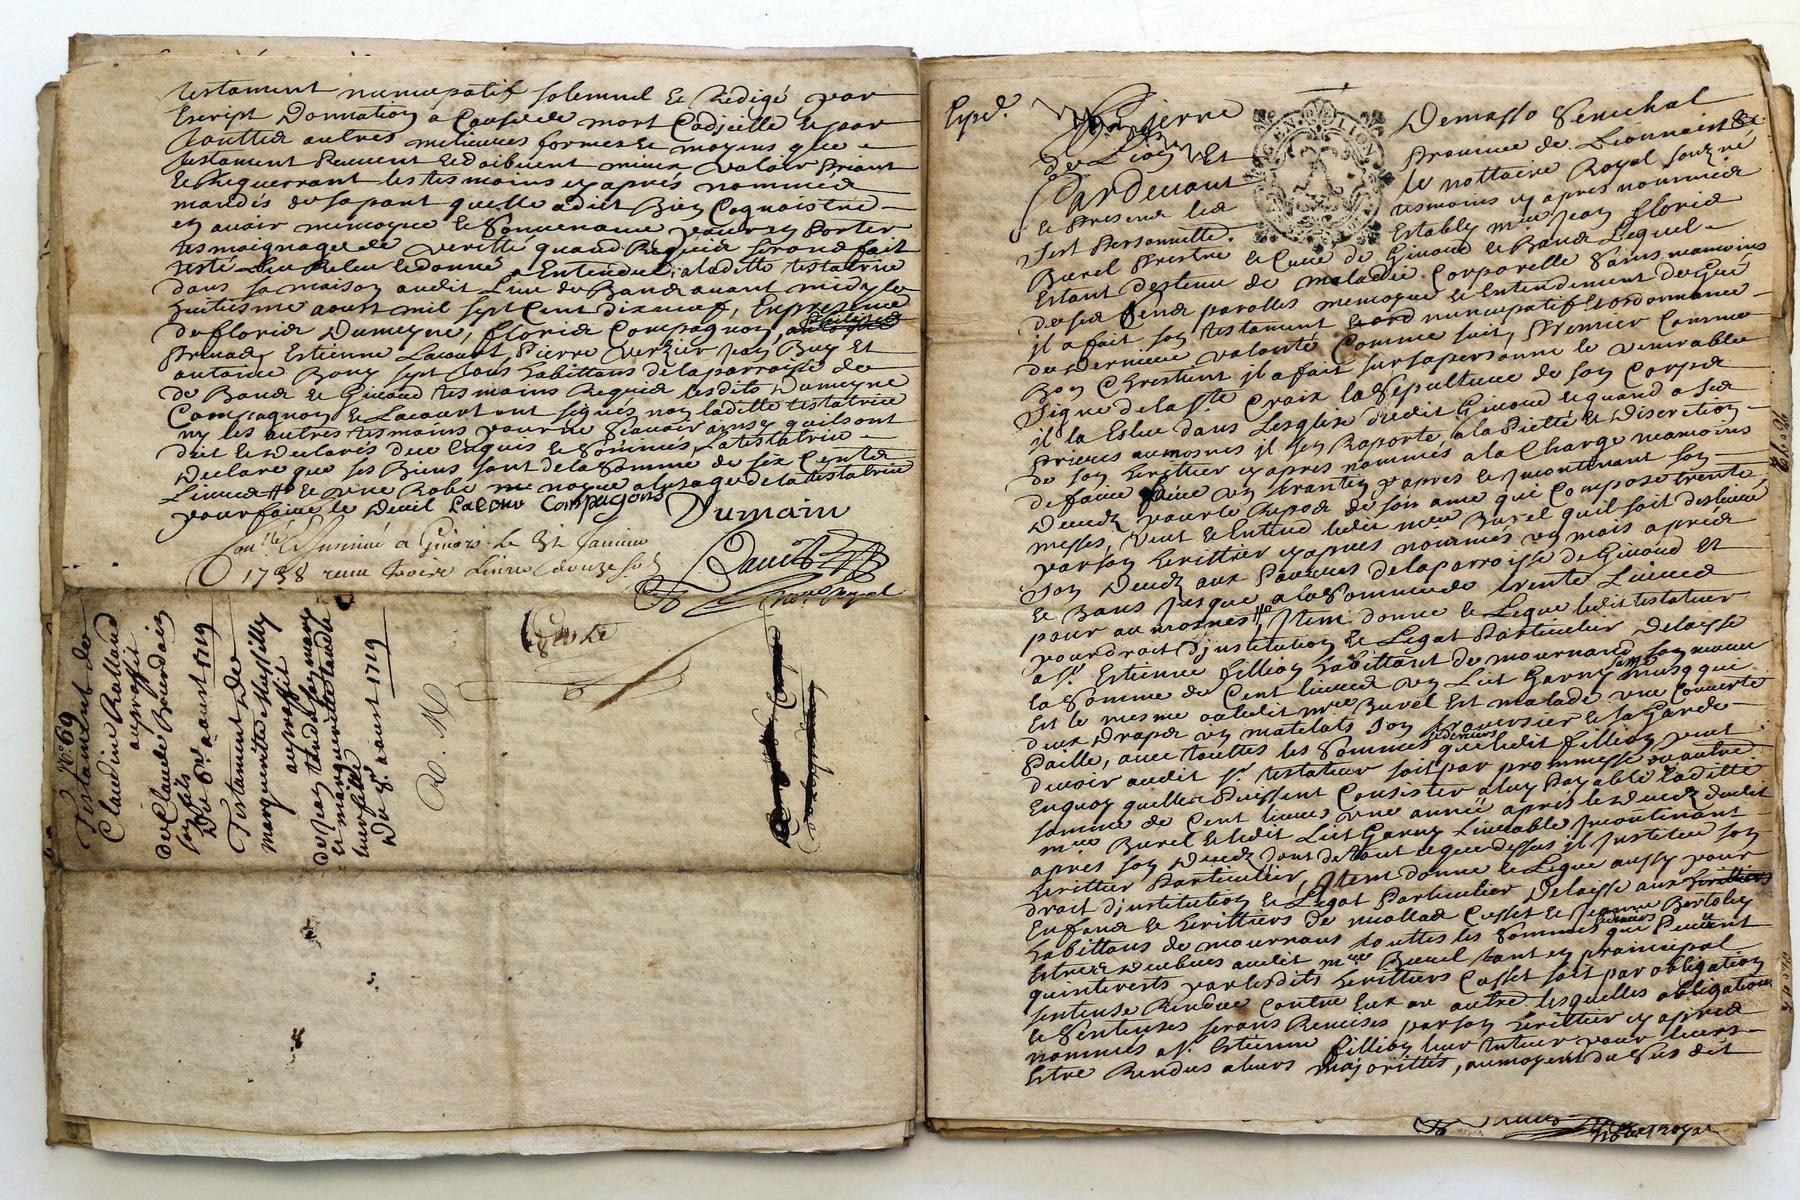 testament nuncupatif solemnel et Redigé par
Escript Donnation a Cause de mort Codicille et par
touttes autres milieures formes et moyens que
testament Peuvent et doibvent mieux valoir Priant
et Requerrant les tesmoins cy aprés nommés
mandés de sa part quelle a dict Bien Cognoistre
en avoir memoyre et Souvenance pour en Porter
tesmoignage de verité quand Requis seront fait
Leu Releu et donné a Entendre a laditte testatrice
dans sa maison audit Lieu de Bans avant midy le
huitiesme aoust mil sept Cent dix neuf, En presence
de Floris Dumeyne, Floris Compagnon,
Estienne Lacourt, Pierre Verzier Jean Buy Et
antoine Bony sept tous habittans de la parroisse de
de Bans et Givord tesmoins Requis lesdits Dumeyne
Compagnon et Lacourt ont signés non laditte testatrice
ny les autres tesmoins pour ne Scavoir ainsy quils ont
dit et declarés de ce Enquis et Sommés, La testatrice
declare que ses Biens sont de la Somme de six Cents
Livres et une Robe a lusage de la testatrice
pour faire le deuil Lacour Compagons Dumain
a Givors le 31 Janvier
1738
N° 69
Testament de
Claudine Rolland
au proffit
de Claude Bourdain
son fils
Du 6e aoust 1719
Testament de
marguerite
au proffit
de Jean son mary
et marguerite
leur fille
Du 8e aoust 1719
R. M.
Exped.
Pierre Demasso Senechal
de Lion Et Province de Lionnois &c
Pardevant le nottaire Royal souzné
Et Presens les tesmoins cy aprés nommés
Fest Personnelle. Estably mre Jean Floris
Burel Prestre et Curé de Givord et Bans Lequel
Estant destenu de maladie Corporelle Sains neamoins
de ses Sens parolles memoyre et Entendement de Gré
il a fait son testament nuncupatif Et ordonnance
de derniere volonté Comme suit, Premier Comme
Bon Chrestient il a fait sur sa personne le venerable
Signe de la Ste Croix la Sepulture de son Corps
il la Eslue dans Lesglise dudit Givord et quand a ses
Prieres aumosnes il sen Raporte a la Pietté et discretion
de son heritier cy aprés nommés a la Charge neamoins
de faire dire un trantin aprés et incontinant son
deceds pour le Repos de son ame qui Compose trente
messes, veut et Entend ledit mre Burel quil soit destribué
par son heritier cy aprés nommés un mois aprés
son deceds aux Pauvres de la parroisse de Givord Et
et Bans Jusque a la Somme de trente Livres
pour aumosnes, Item donne et Legue ledit testateur
pour droit dinstitution et Legat Particulier delaisse
a Sr. Estienne fillion habittant de mournand son neveu
la Somme de Cent livres un Lict Garny
Est le mesme ou ledit mre Burel Est malade une Couverte
deux draps un matelats son traversier et sa Garde
Paille, avec touttes les Sommes et deniers que ledit fillion peut
devoir audit Sr. testateur soit par prommesse ou autre
En quoy quelles Puissent Consister a luy Payable laditte
somme de Cent livres une année aprés le deceds dudit
mre Burel et ledit Lict Garny Livrable incontinant
aprés son deceds, dont de tout ce que dessus il Institue son
heritier Particulier, Item donne et Legue aussy pour
droit dinstitution et Legat Particulier Delaisse aux heritiers
Enfans et heritiers de nicollas Cusset et Jeanne Bertolley
habittans de mournans touttes les Sommes et deniers qui Peuvent
Estre debues audit mre Burel tant en principal
quinterests par lesdits heritiers Cusset soit par obligation
sentense Rendue Contre Eux ou autre lesquelles obligations
et Sentenses serons Remises par son heritier cy aprés
nommés a Sr. Estienne fillion leur tuteur pour leurs
Estre Rendues a leurs majorittés, au moyent du Sus dit